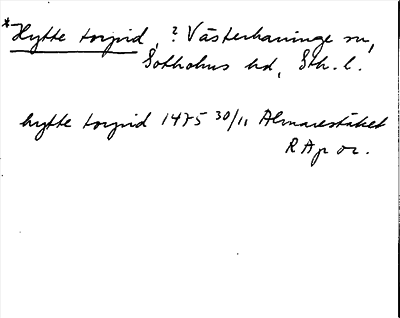 *Hytte torpid, ? Västerhaninge sn,
Sotholms hd, Sth. l.
hytte torpid 1475 30/11 Almarestäket
RAp or.